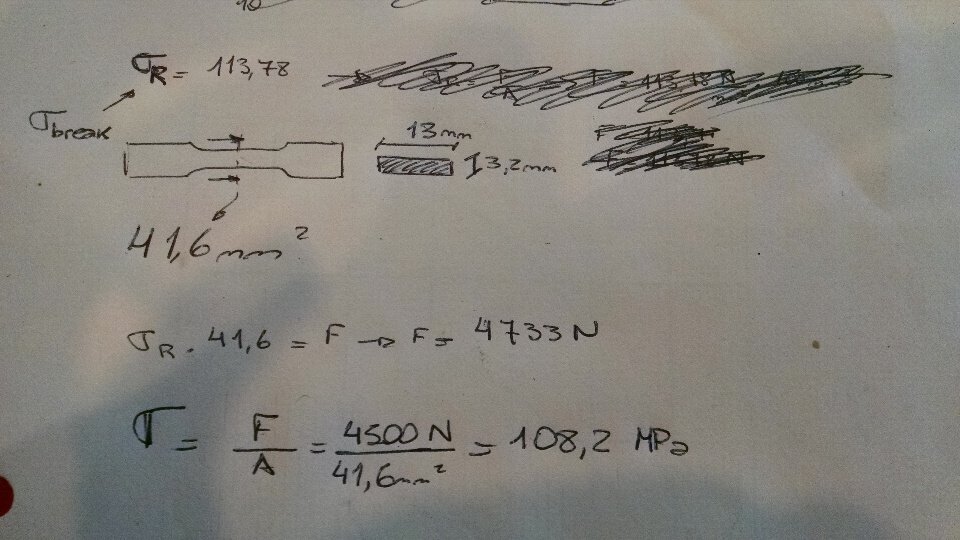 σR = 113,78
σbreak
13mm
3,2mm
41,6mm²
σR . 41,6 = F → F = 4733 N
σ = F/A = 4500 N/41,6mm² = 108,2 MPa